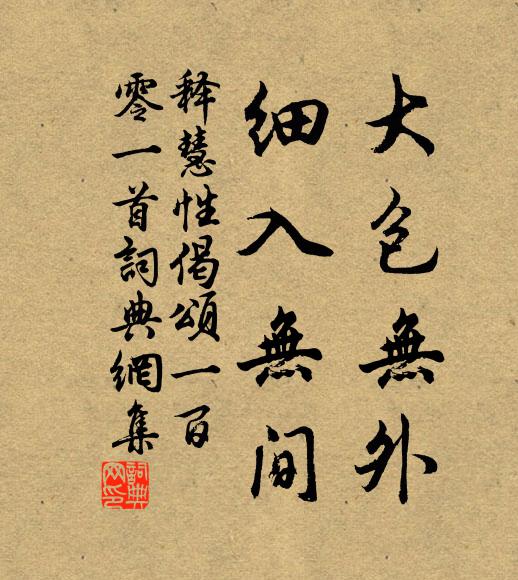 大包無外
細入無間
释慧性偈頌一百
零一首詞典網集
詞典网印